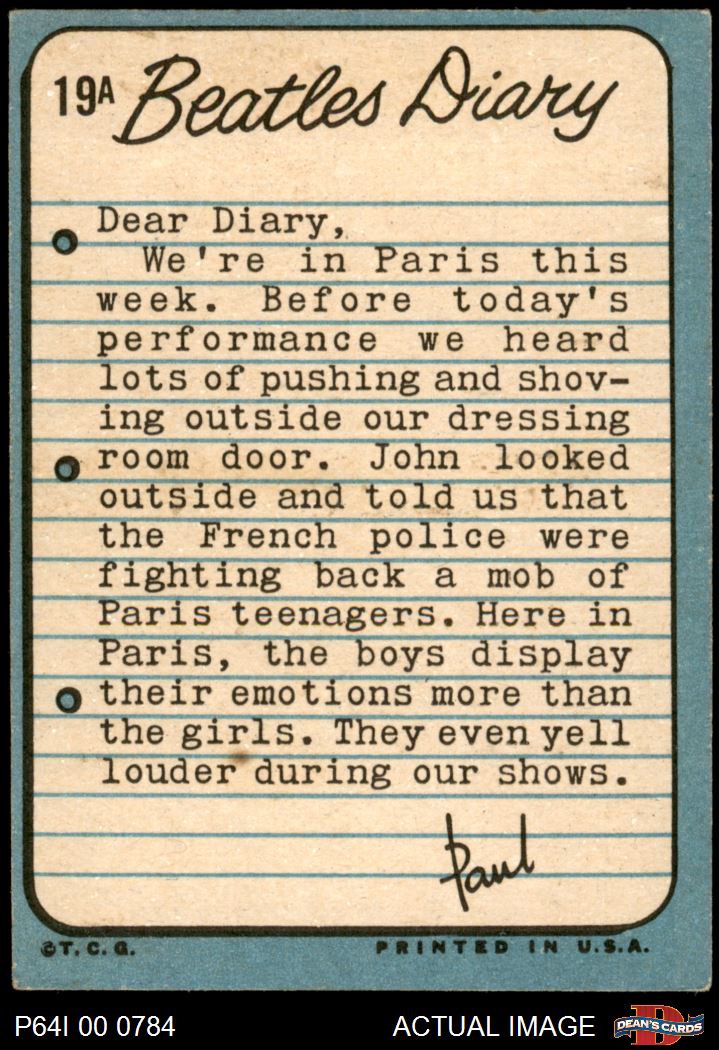 19A Beatles Diary
Dear Diary,
We're in Paris this
week. Before today's
performance we heard
lots of pushing and shov-
ing outside our dressing
room door. John looked
outside and told us that
the French police were
fighting back a mob of
Paris teenagers. Here in
Paris, the boys display
their emotions more than
the girls. They even yell
louder during our shows.
Paul
©T.C.G. PRINTED IN U.S.A.
P64I 00 0784 ACTUAL IMAGE DEAN'S CARDS